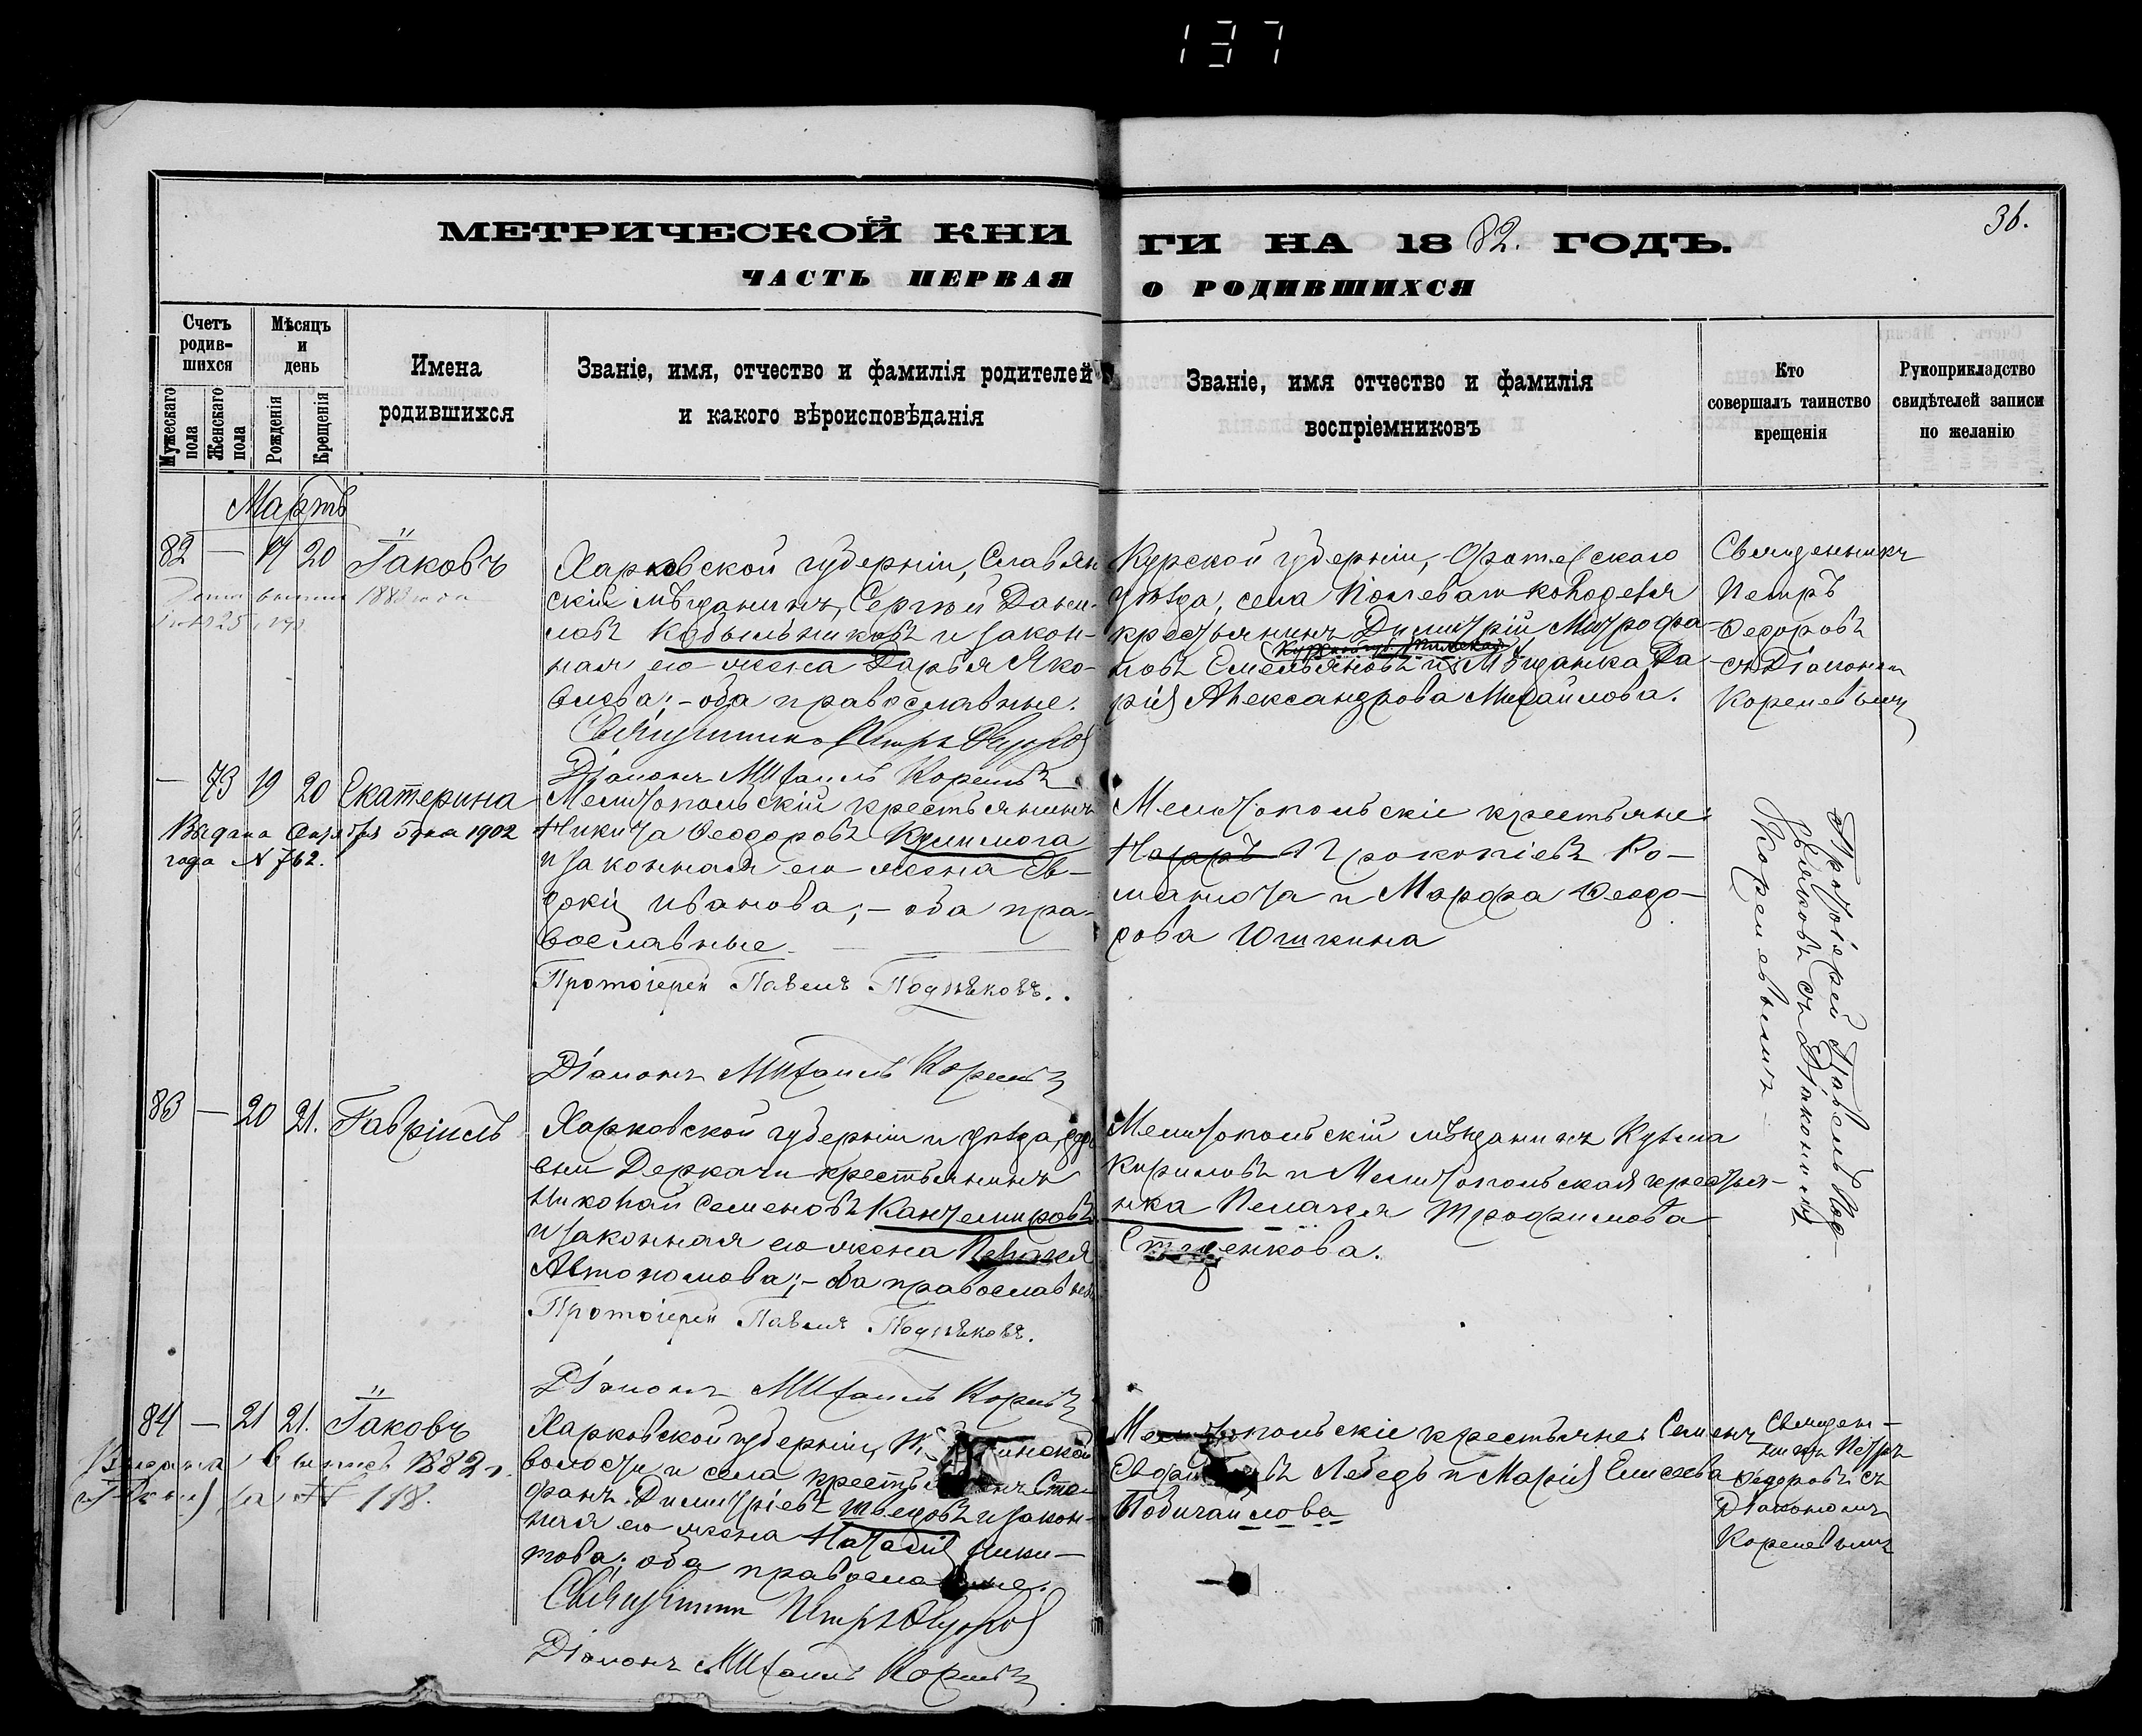 137
МЕТРИЧЕСКОЙ КНИ
ГИ НА 1882. ГОДЪ.
36.
ЧАСТЬ ПЕРВАЯ
О РОДИВШИХСЯ
Счетъ родив-шихся
Мужескаго пола
Женскаго пола
Мѣсяцъ и день
Рожденія
Крещенія
Имена
родившихся
Званіе, имя, отчество и фамилія родителей
и какого вѣроисповѣданія
Званіе, имя отчество и фамилія
воспріемниковъ
Кто
совершалъ таинство
крещенія
Рукоприкладство
свидѣтелей записи
по желанію
Мартъ
82 — 17 20 Іаковъ
1883 года
Харковской губерніи, Славян
скій мѣщанинъ, Сергѣй Дани-
ловъ Кобыльниковъ и закон-
ная его жена Дарья Яко-
влева; – оба православные.
Священникъ Петръ Федоровъ
Діаконъ Михаилъ Кореневъ
Курской губерніи,
уѣзда, села
крестьянинъ Димитрій Митрофа-
новъ Емельяновъ и Мѣщанка Да-
рія Александрова Михайлова.
Священникъ
Петръ
Федоровъ
съ Діакономъ
Кореневымъ
— 73 19 20 Екатерина
Выдана Октября 5 дня 1902
года № 762.
Мелитопольскій крестьянинъ
Никита Феодоровъ
и законная его жена Ев-
докія Иванова; – оба пра-
вославные.
Протоіерей Павелъ Подпѣковъ.
Діаконъ Михаилъ Кореневъ
Мелитопольскіе крестьяне:
Прокопіевъ Ко-
и Марфа Феодо-
рова Юшкина
Протоіерей Павелъ
съ Діакономъ
Кореневымъ
83 — 20 21. Гавріилъ
Харковской губерніи и уѣзда, дере
вни Деркачи крестьянинъ
Николай Семеновъ Кантемировъ
и законная его жена Пелагея
Автономова; – оба православные
Протоіерей Павелъ Подпѣковъ.
Діаконъ Михаилъ Кореневъ
Мелитопольскій мѣщанинъ Кузьма
Кириловъ и Мелитопольская крестья-
нка Пелагея Трофимова
84 — 21 21. Іаковъ
Выдана выпись 1882 г.
за № 118.
Харковской губерніи,
волости и села крестьянинъ Сте-
фанъ Димитріевъ Шведовъ и закон-
ная его жена Наталія Ники-
това; оба православные.
Священникъ Петръ Федоровъ
Діаконъ Михаилъ Кореневъ
Мелитопольскіе крестьяне: Семенъ
Лебедь и Марія Елисеева
Побичайлова
Священ-
никъ Петръ
Федоровъ съ
Діакономъ
Кореневымъ